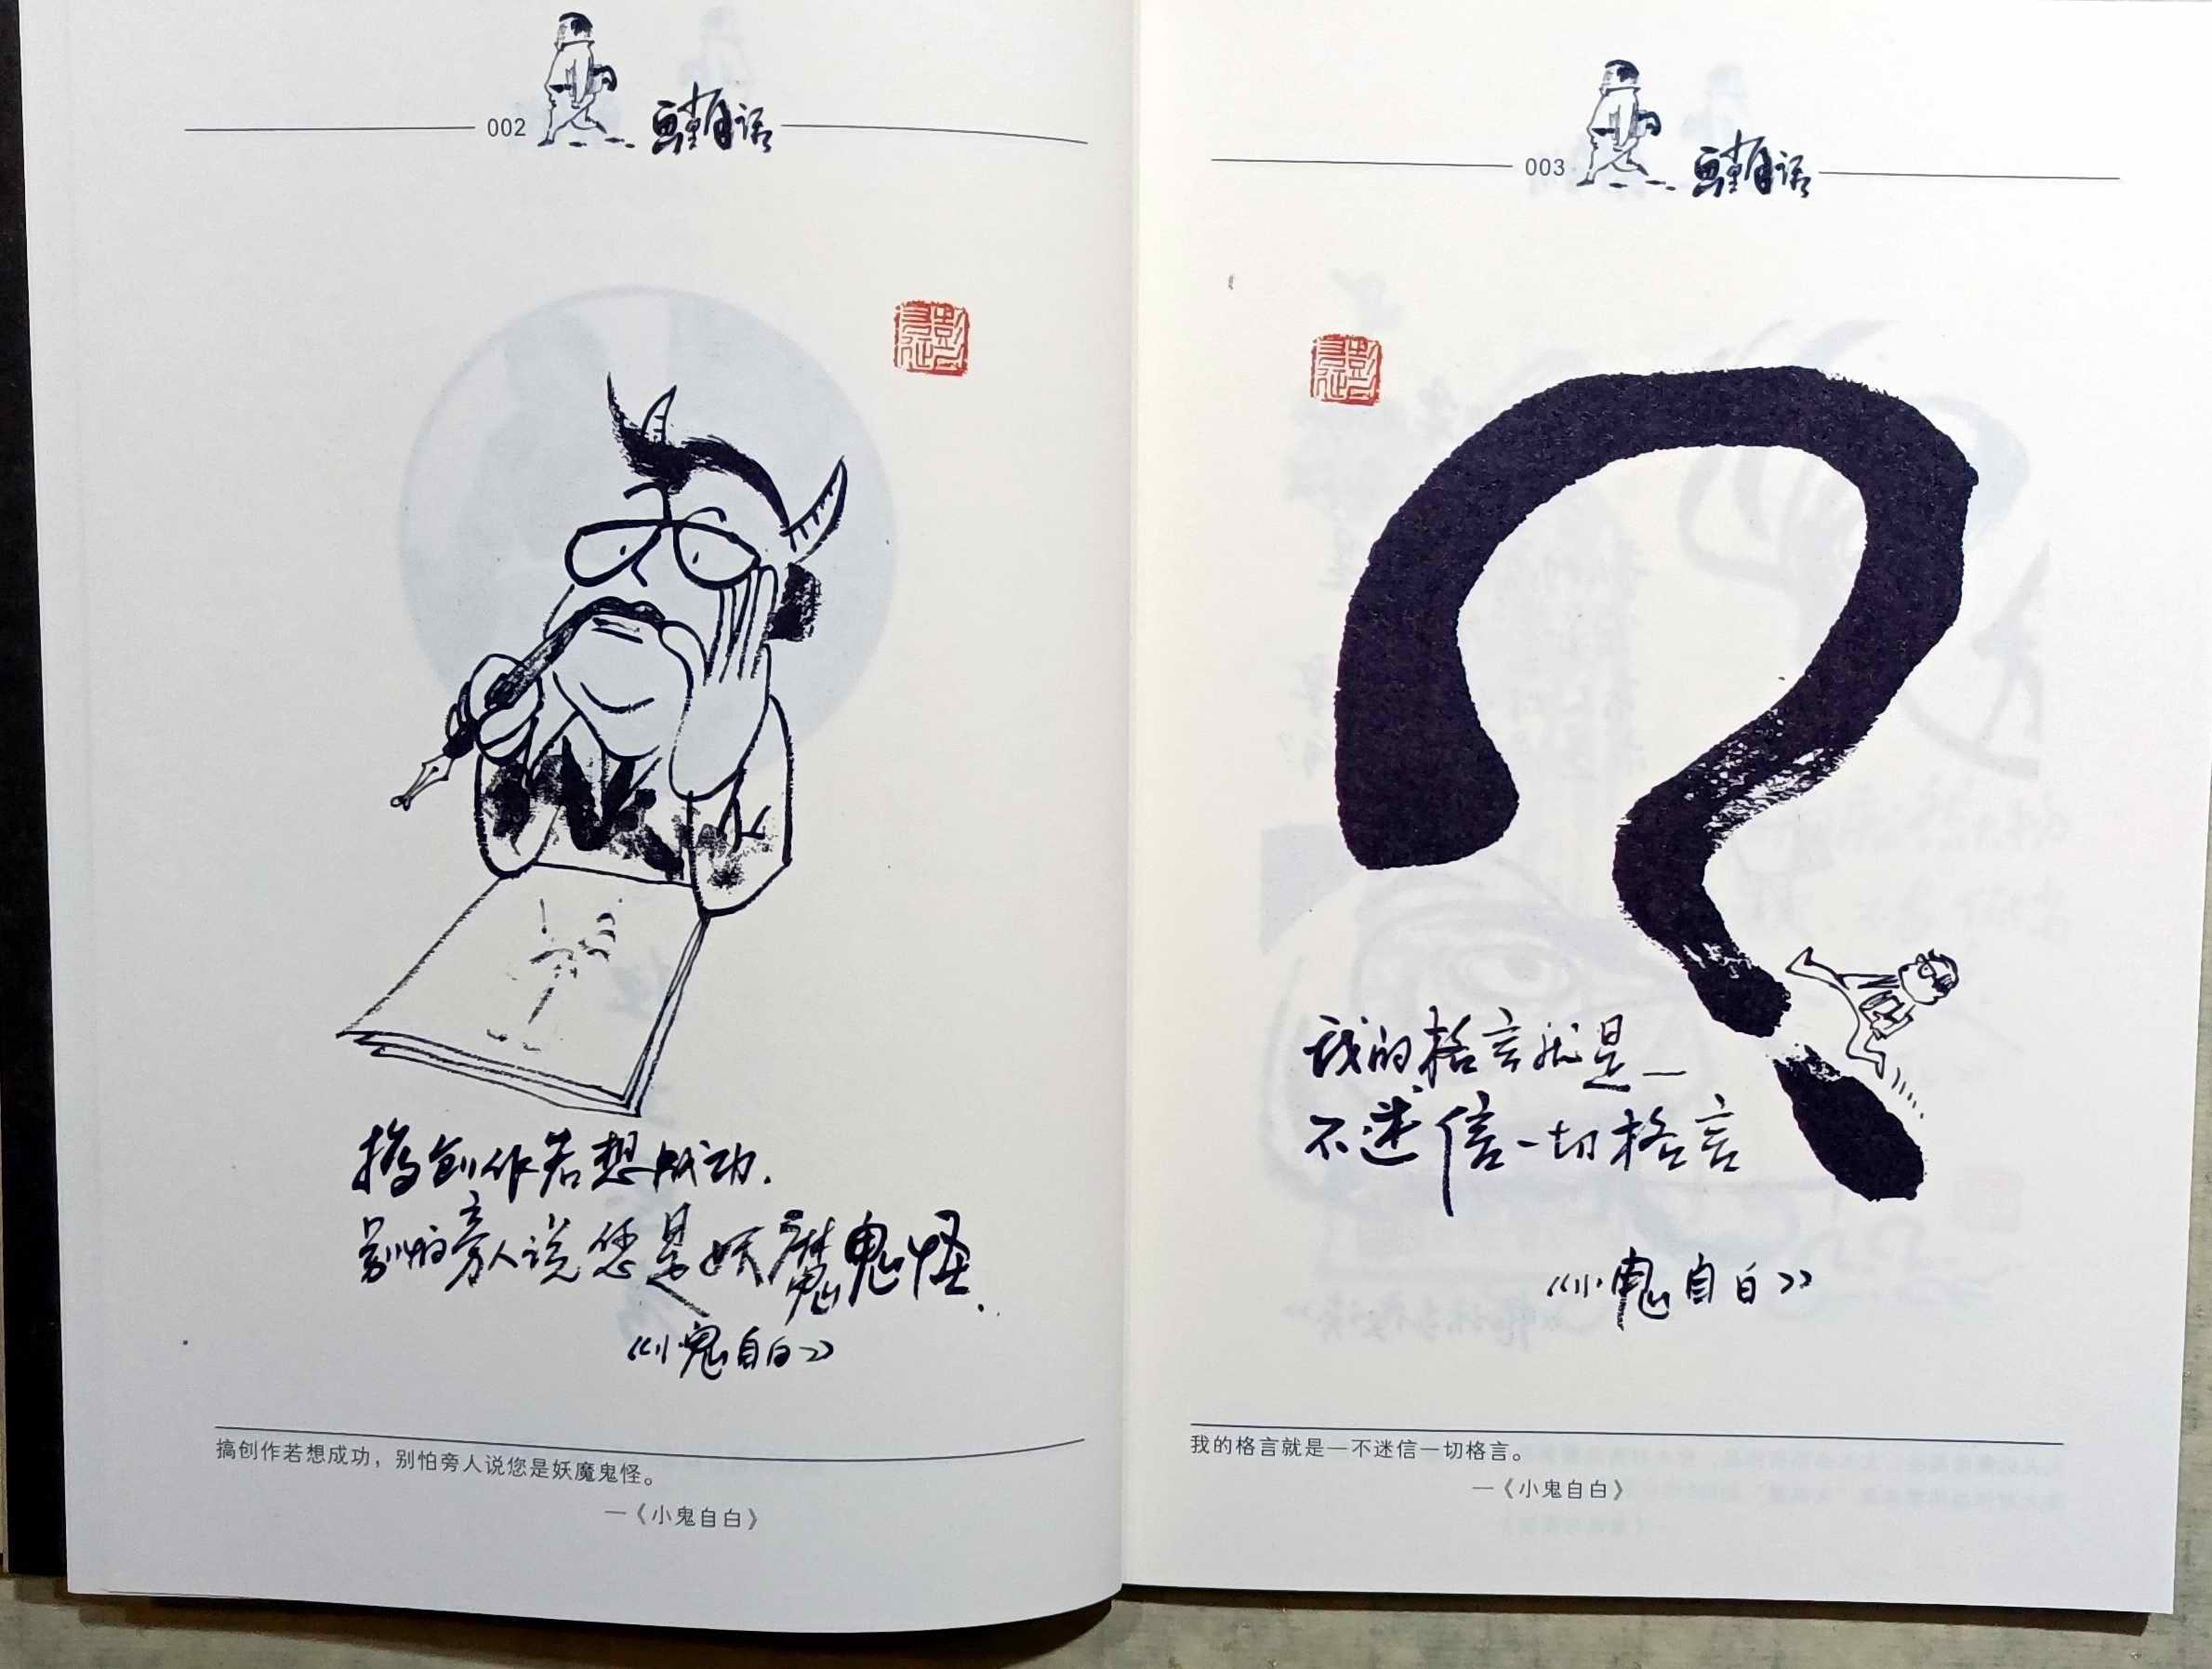 002
搞创作若想成功.
别怕旁人说您是妖魔鬼怪.
《小鬼自白》
搞创作若想成功，别怕旁人说您是妖魔鬼怪。
—《小鬼自白》
003
我的格言就是—
不迷信一切格言
《小鬼自白》
我的格言就是—不迷信一切格言。
—《小鬼自白》